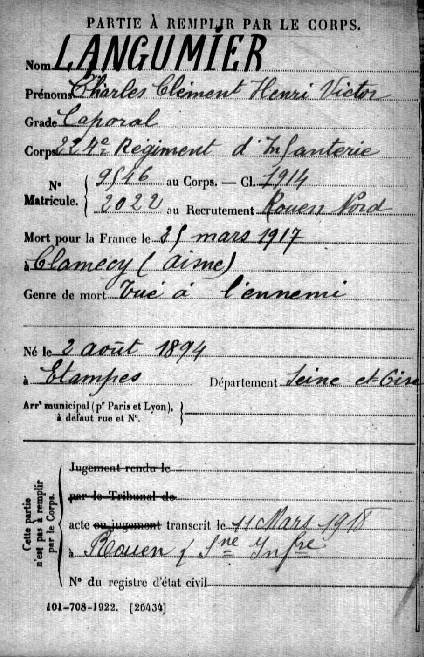 PARTIE À REMPLIR PAR LE CORPS.
Nom LANGUMIER
Prénoms Charles Clément Henri Victor
Grade Caporal
Corps 224e Régiment d'Infanterie
N° Matricule. { 9546 au Corps. — Cl. 1914
2022 au Recrutement Rouen Nord
Mort pour la France le 25 mars 1917
à Clamecy (Aisne)
Genre de mort Tué à l'ennemi
Né le 2 août 1894
à Etampes Département Seine et Oise
Arr^t municipal (p^r Paris et Lyon), à défaut rue et N°. }
Cette partie n'est pas à remplir par le Corps. {
Jugement rendu le
par le Tribunal de
acte ou jugement transcrit le 11 Mars 1918
à Rouen (Sne Infre
N° du registre d'état civil
101-708-1922. [26434]